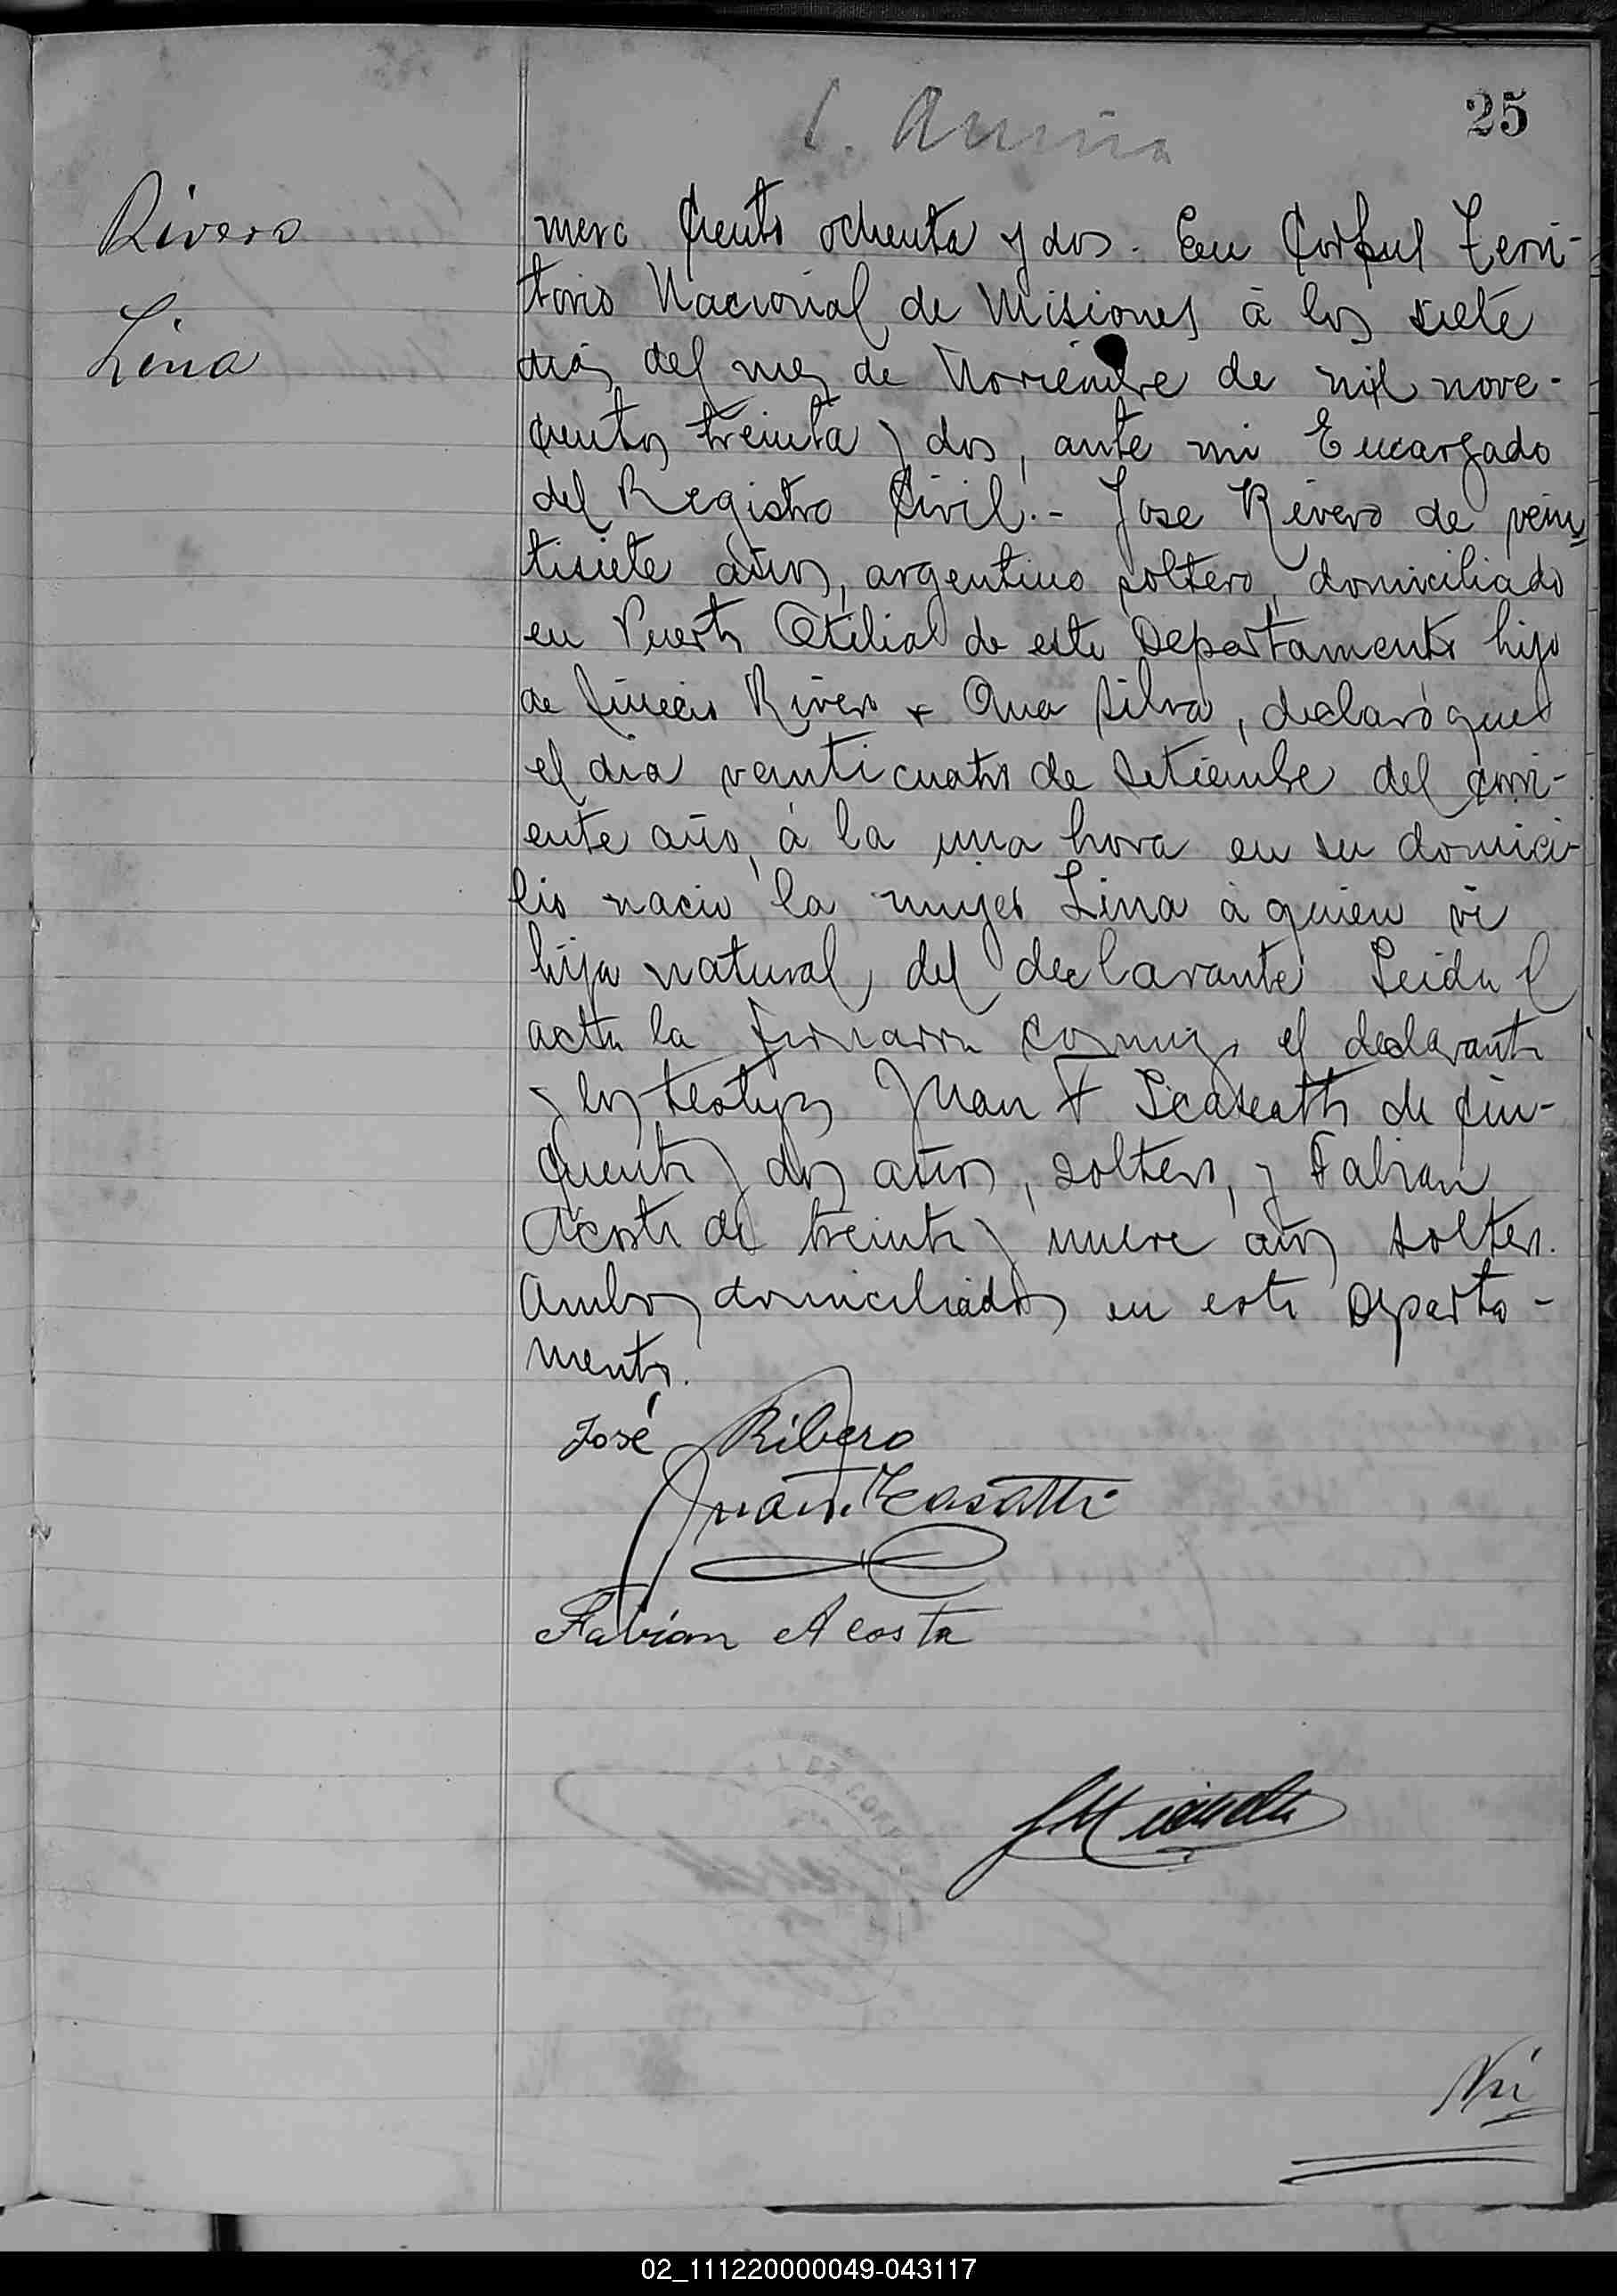 25
Rivero
Lina
mero Ciento ochenta y dos. En Corpus Terri-
torio Nacional de Misiones á los siete
dias del mes de Noviembre de mil nove-
cientos treinta y dos, ante mi Encargado
del Registro Civil.- Jose Rivero de vein
tisiete años, argentino soltero, domiciliado
en Puerto Otilia de este Departamento hijo
de Rivero y Ana Silva, declaró que
el dia veinticuatro de Setiembre del corri-
ente año, á la una hora en su domici-
lio nacio la mujer Lina á quien vi
hija natural del declarante Leida el
acta la firmaron conmigo el declarante
y los testigos Juan F de cin-
cuenta y dos años, soltero, y Fabian
Acosta de treinta y nueve años soltero.
Ambos domiciliados en este Departa-
mento.
José Ribero
Juan F. Casatti
Fabián Acosta
Nú
02_111220000049-043117